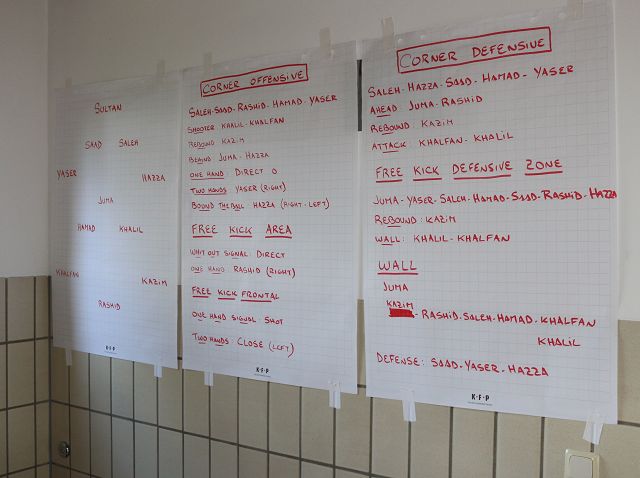 SULTAN
SAAD SALEH
YASER HAZZA
JUMA
HAMAD KHALIL
KHALFAN KAZIM
RASHID
K·F·P
CORNER OFFENSIVE
SALEH-SAAD-RASHID-HAMAD-YASER
SHOOTER: KHALIL-KHALFAN
REBOUND KAZIM
BEHIND JUMA-HAZZA
ONE HAND: DIRECT
TWO HANDS YASER (RIGHT)
BOUND THE BALL HAZZA (RIGHT-LEFT)
FREE KICK AREA
WHIT OUT SIGNAL: DIRECT
ONE HAND RASHID (RIGHT)
FREE KICK FRONTAL
ONE HAND SIGNAL: SHOT
TWO HANDS: CLOSE (LEFT)
K·F·P
CORNER DEFENSIVE
SALEH-HAZZA-SAAD-HAMAD-YASER
AHEAD JUMA-RASHID
REBOUND: KAZIM
ATTACK: KHALFAN-KHALIL
FREE KICK DEFENSIVE ZONE
JUMA-YASER-SALEH-HAMAD-SAAD-RASHID-HAZZA
REBOUND: KAZIM
WALL: KHALIL-KHALFAN
WALL
JUMA
KAZIM
-RASHID-SALEH-HAMAD-KHALFAN
KHALIL
DEFENSE: SAAD-YASER-HAZZA
K·F·P